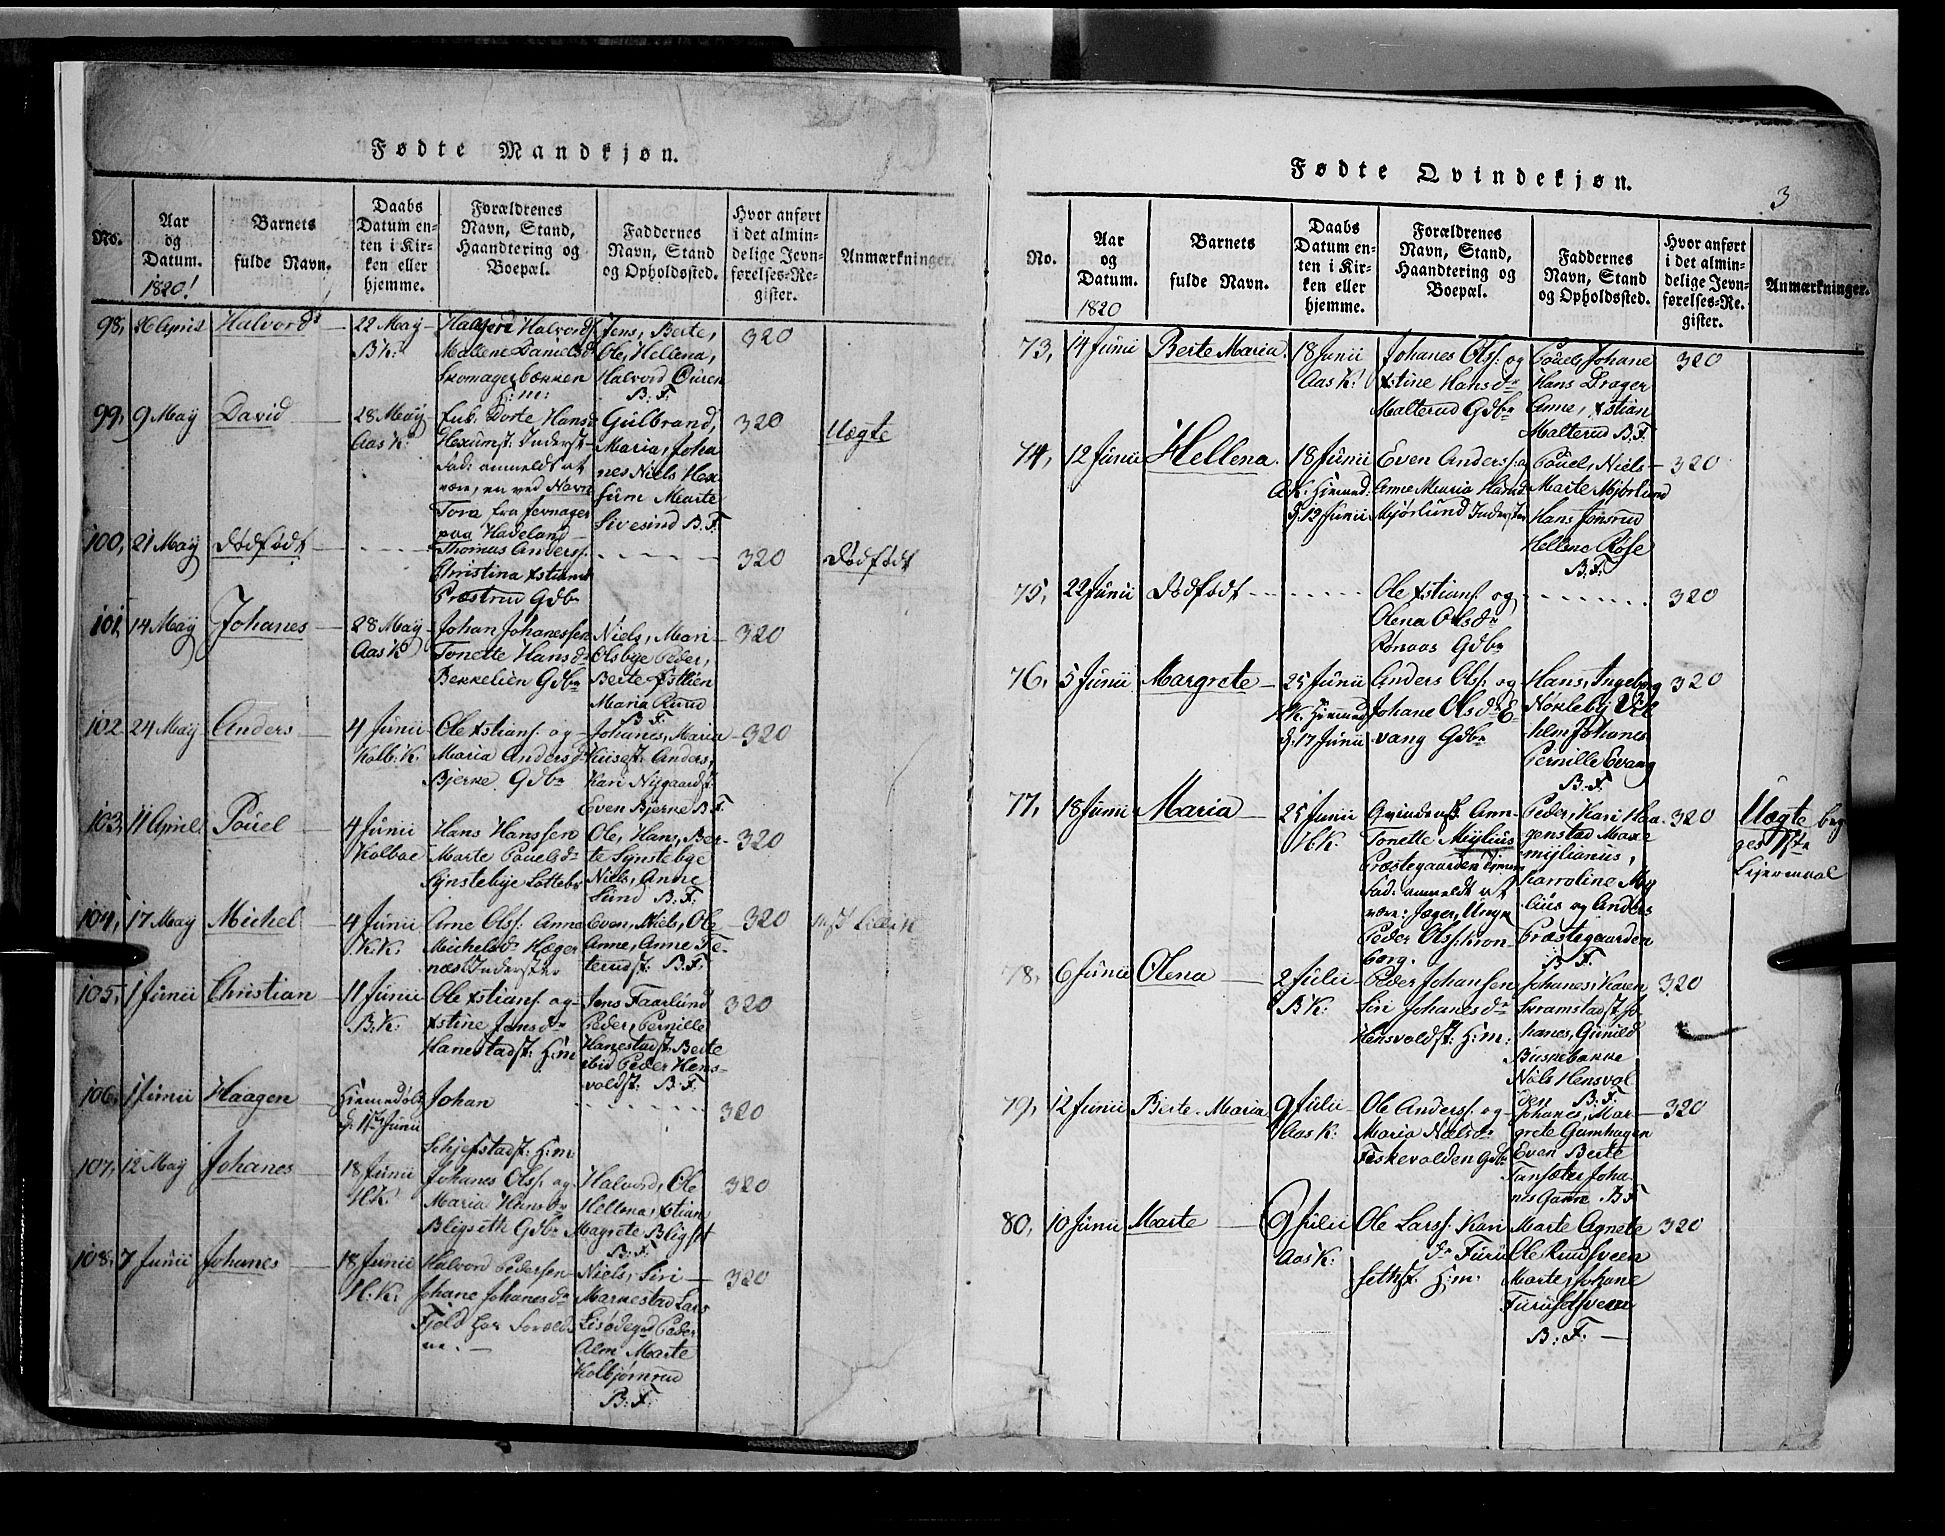 Fødte Mandkjøn.
No.
Aar
og
Datum.
1820!
Barnets
fulde Navn.
Daabs
Datum en-
ten i Kir-
ken eller
hjemme.
Forældrenes
Navn, Stand,
Haandtering og
Boepæl.
Faddernes
Navn, Stand
og Opholdssted.
Hvor anført
i det almin-
delige Jevn-
førelses-Re-
gister.
Anmærkninger.
98, 26 April Halvord 22 May
B K:
Halvords
Mallene Daniels
Skomagerbækken
H: m:
Jens, Berte,
Ole, Hellena,
Halvord
B. F.
320
99, 9 May David 28 May
Aas K:
Dorte Hans
Inderst
anmeldt at
være, en ved Navn
Tora fra Jevnager
paa Hadeland
Gulbrand,
Maria, Joha
nes Niels Hex
um Marte
Sivesind B. F.
320
Uægte
100, 21 May Dødfødt
Thomas Anders.
Christina Xstians
Præstrud Gdb
320
Dødfødt
101, 14 May Johanes 28 May
Aas K:
Johan Johanessen
Tonette Hansd
Bekkelien Gdbr
Niels, Mari
Olsbye Peder,
Berte Østlien
Maria Ruud
B F.
320
102 24 May Anders 4 Junii
Kolb: K:
Ole Xstians. og
Maria Andersd
Bjerke Gdbr
Johanes, Maria
Huusest: Anders,
Kari Nygaardst
Even Bjerke B. F.
320
103, 11 April Pouel 4 Junii
Kolboe
Hans Hanssen
Marte Pouelsdr
Synstebye Lottebr
Ole, Hans, Ber-
te Synstebye
Niels, Anne
Sund B. F.
320
104, 17 May Michel 4 Junii
K. K:
Arne Olss: Anne
Michelsdr Hæger
næs Inderster
Even, Niels, Ole
Anne, Anne Te-
terudst: B. F.
320
105, 1 Junii Christian 11 Junii
B. K:
Ole Xstians. og
Xstine Jensdr
Hanestadst: H: m
Jens Faarlund
Peder, Pernille
Hanestadst: Berte
ibid Peder Hens-
voldst: B. F.
320
106, 1 Junii Haagen Hiemmedøbt
d: 1 Junii
Johan
Schjefstadst: H: m
320
107, 12 May Johanes 18 Junii
H. K:
Johanes Olss. og
Maria Hansdr
Bligseth Gdbr
Halvord, Ole
Hellena, Xstian
Magrete Bligst
B. F.
320
108, 7 Junii Johanes 18 Junii
H. K:
Halvord Pedersen
Johane Johanesdr
Fjeld
Niels, Siri
Markestad Lars
Lisødeged Peder
Alm Marte
Kolbjørnrud
B: F.
320
Fødte Qvindekjøn.
3
No.
Aar
og
Datum.
1820
Barnets
fulde Navn.
Daabs
Datum en-
ten i Kir-
ken eller
hjemme.
Forældrenes
Navn, Stand,
Haandtering og
Boepæl.
Faddernes
Navn, Stand
og Opholdssted.
Hvor anført
i det almin-
delige Jevn-
førelses-Re-
gister.
Anmærkninger.
73, 14 Junii Berte Maria. 18 Junii
Aas K:
Johanes Olss: og
Xstine Hansdr
Malterud Gdbr
Pouel, Johane
Hans Drager
Anne, Xstian
Malterud B. F.
320
74, 12 Junii Hellena. 18 Junii
A. K. Hiemmed:
d: 12 Junii
Even Anderss: og
Anne Maria Hansd
Mjørlund Inderster
Pouel, Niels
Marte Mjørlund
Hans Jonsrud
Hellene Røse
B. F.
320
75, 22 Junii Dødfødt
Ole Xstians. og
Olena Olsdr
Rønaas Gdbr
320
76, 5 Junii Margrete 25 Junii
H. K. Hiemmed
d: 17 Junii
Anders Olss. og
Johane Olsdr E-
vang Gdbr
Hans, Ingeborg
Nøkleby Vil
helm Johanes
Pernille Evang
B. F.
320
77, 18 Junii Maria 25 Junii
H. K.
Qvindemsk. Ann-
Tonette Mylius
Præstegaarden
anmeldt at
være: Jæger, Ungk
Peder Olss: Kron
borg.
Peder, Kari Haa
genstad Maxe
miljanus,
Karroline My
lius og Anders
Præstegaarden
B. F.
320
Uægte beg
ges 1ste
Lejermaal
78, 6 Junii Olena 2 Julii
B K.
Peder Johansen
Siri Johanesdr
Hensvoldst: H: m:
Johanes, Karen
Skramstadst Jo
hanes, Gunild
Buskebakke
Niels Hensvol
den B. F.
320
79, 12 Junii Berte Maria 9 Julii
Aas K:
Ole Anderss: og
Maria Nielsdr
Fiskevolden Gdbr
Johanes, Mar-
grete Gamhagen
Even Berte
Johan-
nes B F
320
80, 10 Junii Marte 9 Julii
Aas K:
Ole Larss: Kari
dr Furu
sethst: H: m.
Marte Agnete
Ole Ruudsveen
Marte, Johane
Furusetsveen
B: F.
320